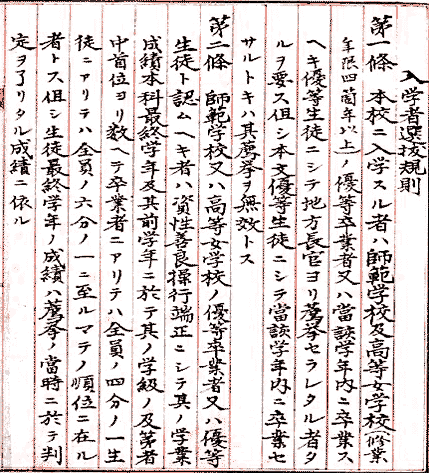 入学者選抜規則
第一條 本校ニ入学スル者ハ師範学校及高等女学校修業
年限四箇年以上ノ優等卒業者又ハ當該学年内ニ卒業ス
ヘキ優等生徒ニシテ地方長官ヨリ薦挙セラレタル者タ
ルヲ要ス但シ本文優等生徒ニシテ當該学年内ニ卒業セ
サルトキハ其薦挙ヲ無效トス
第二條 師範学校又ハ高等女学校ノ優等卒業者又ハ優等
生徒ト認ムヘキ者ハ資性善良操行端正ニシテ其ノ学業
成績本科最終学年及其前学年ニ於テ其ノ学級ノ及第者
中首位ヨリ数ヘテ卒業者ニアリテハ全員ノ四分ノ一生
徒ニアリテハ全員ノ六分ノ一ニ至ルマテノ順位ニ在ル
者トス但シ生徒最終学年ノ成績ハ薦挙ノ當時ニ於テ判
定ヲ了リタル成績ニ依ル